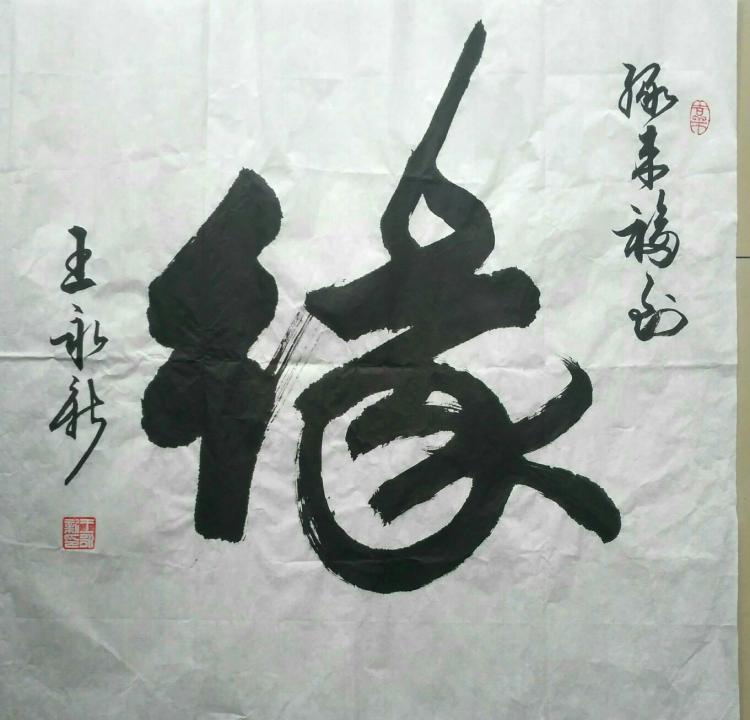 缘来福到
缘
王永新